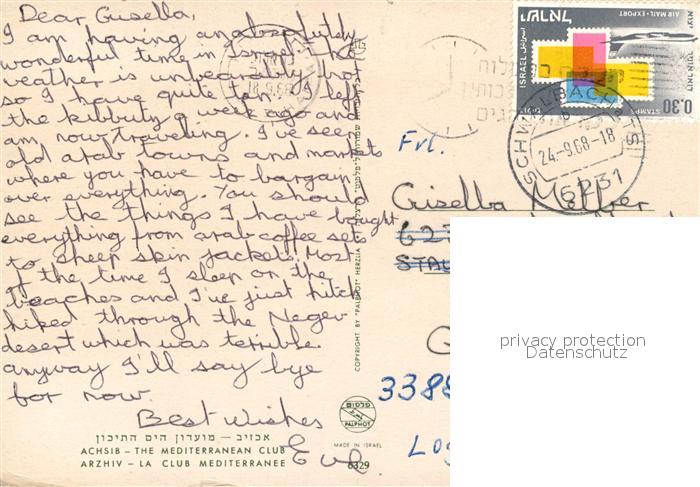 Dear Gisella,
I am having an absolutely
wonderful time in Israel. The
weather is unbearably hot
so I have quite a tan. I left
the kibbutz a week ago and
am now traveling. I've seen
old arab towns and markets
where you have to bargain
over everything. You should
see the things I have bought
everything from arab coffee set
to sheep skin jackets. Most
of the time I sleep on the
beaches and I've just hitch
hiked through the Negev
desert which was terrible.
anyway I'll say bye
for now.
Best Wishes
אכזיב – מועדון הים התיכון
ACHSIB – THE MEDITERRANEAN CLUB
ARZHIV – LA CLUB MEDITERRANEE
COPYRIGHT BY "PALPHOT" HERZLIA
פלפוט
PALPHOT
MADE IN ISRAEL
6329
ישראל
ISRAEL
AIR MAIL-EXPORT
STAMPS
0.30
24-9.68-18
6231
Frl.
Gisella
3388
privacy protection
Datenschutz